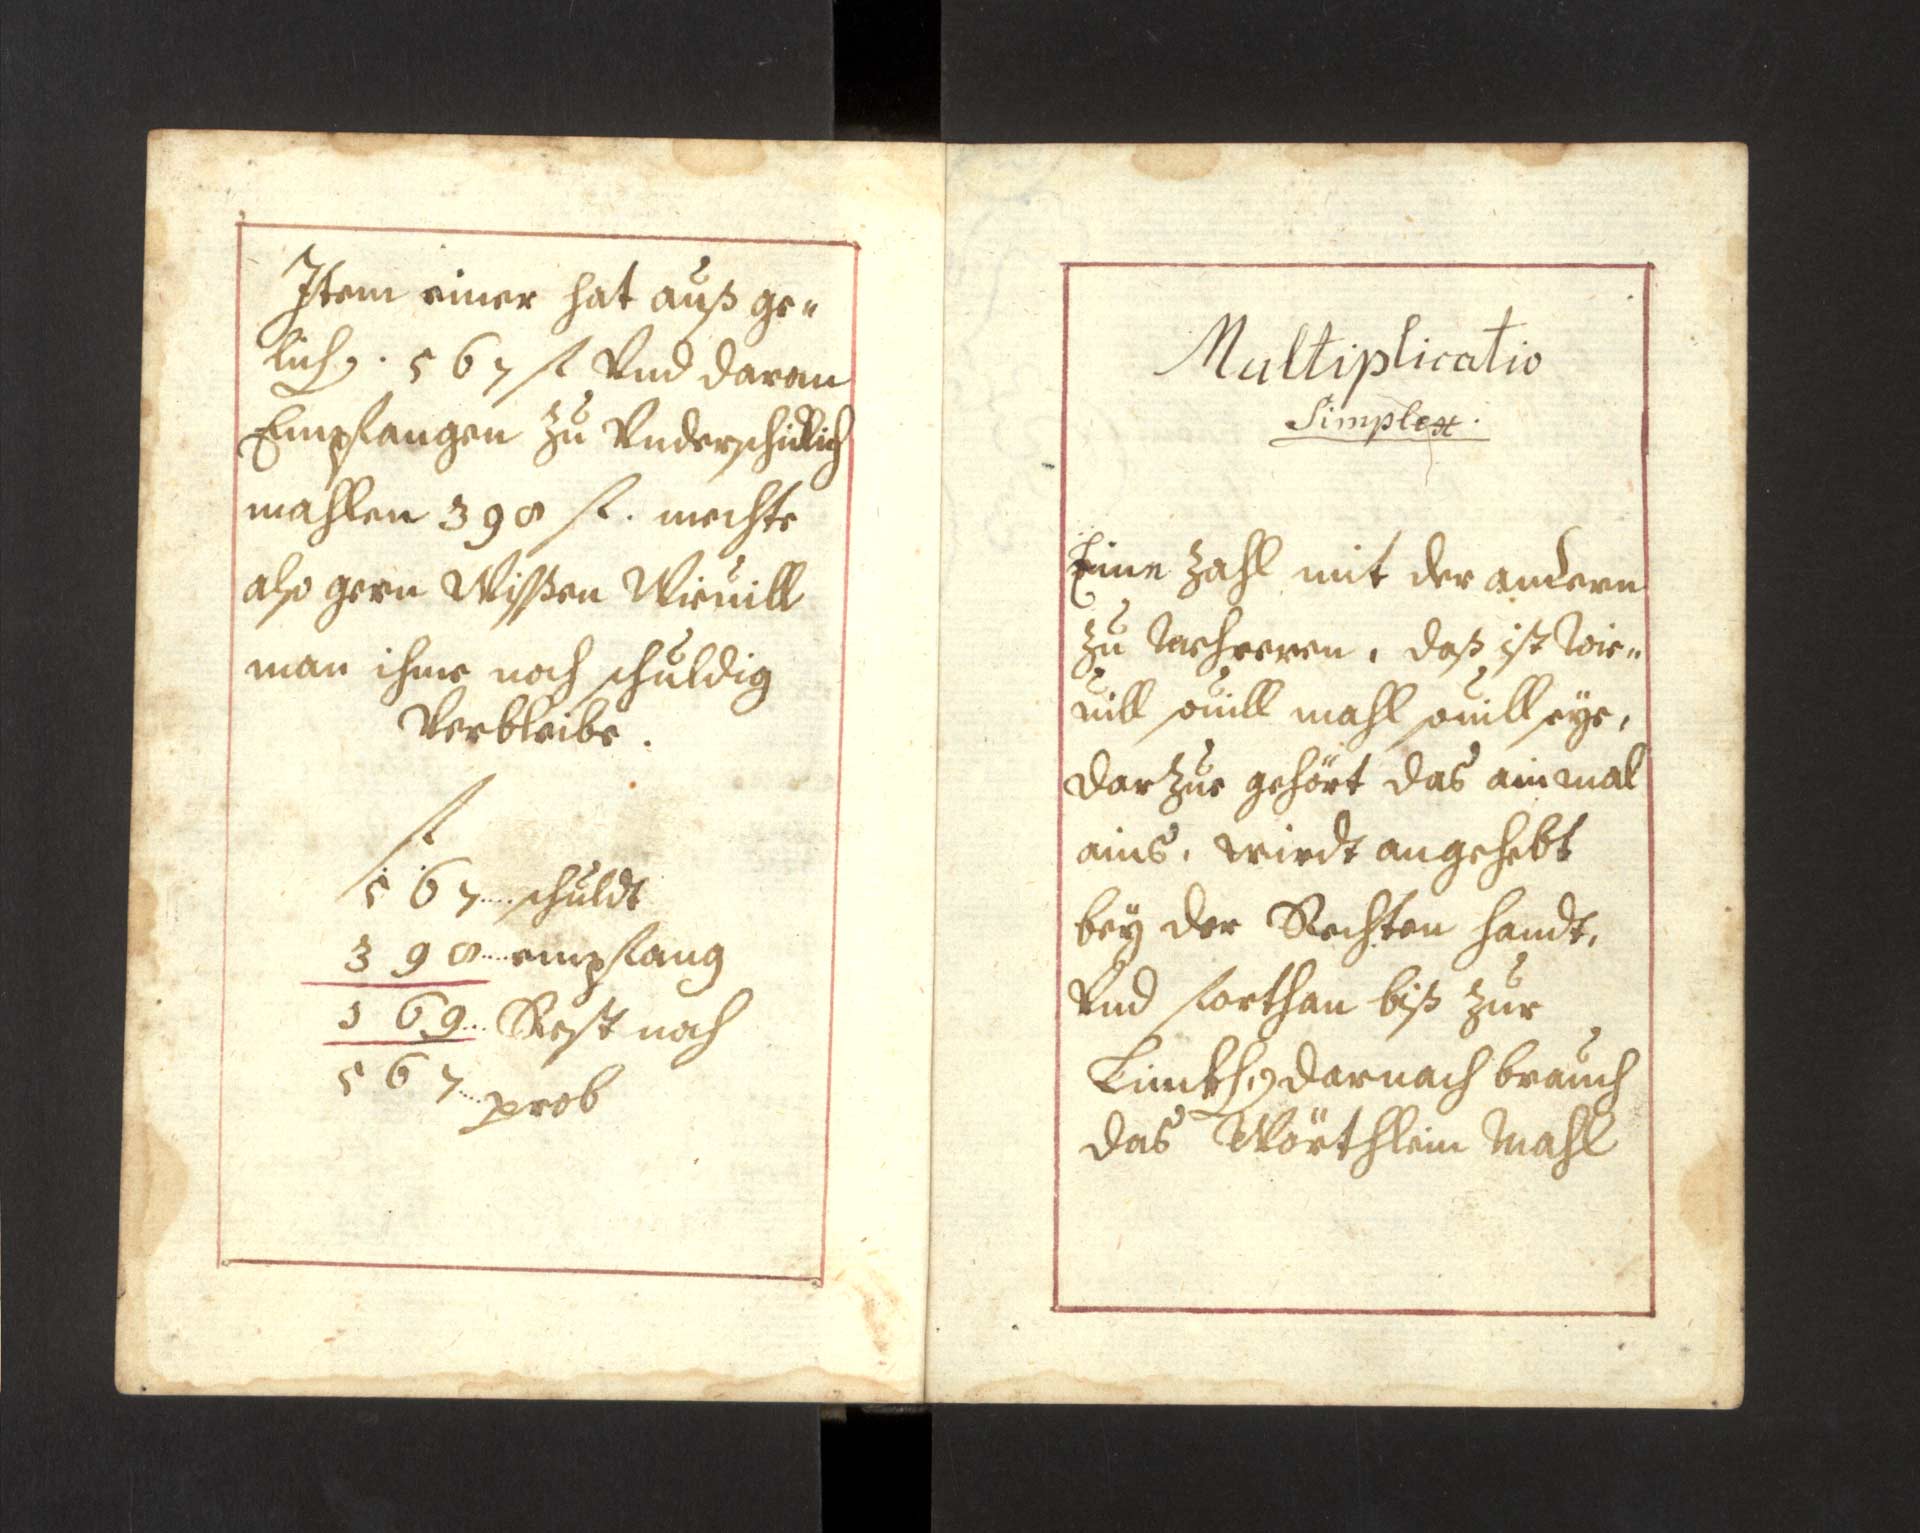 Item einer hat auß ge„
lichen. 567 fl Vnd daran
Empfangen zu Vnderschidlich
mahlen 398 fl. mechte
also gern Wissen Wieuill
man ihme noch schuldig
Verbleibe.
fl
567....schuldt
398....empfang
169... Rest noch
567....prob
Multiplicatio
Simplex.
Eine zahl mit der andern
zu mehreren, daß ist wie„
uill souill mahl souill seye,
dar zue gehört das ainmal
ains, wirdt angehebt
bey der Rechten handt,
Vnd forthan biß zur
Linckhen darnach brauch
das Wörthlein mahl